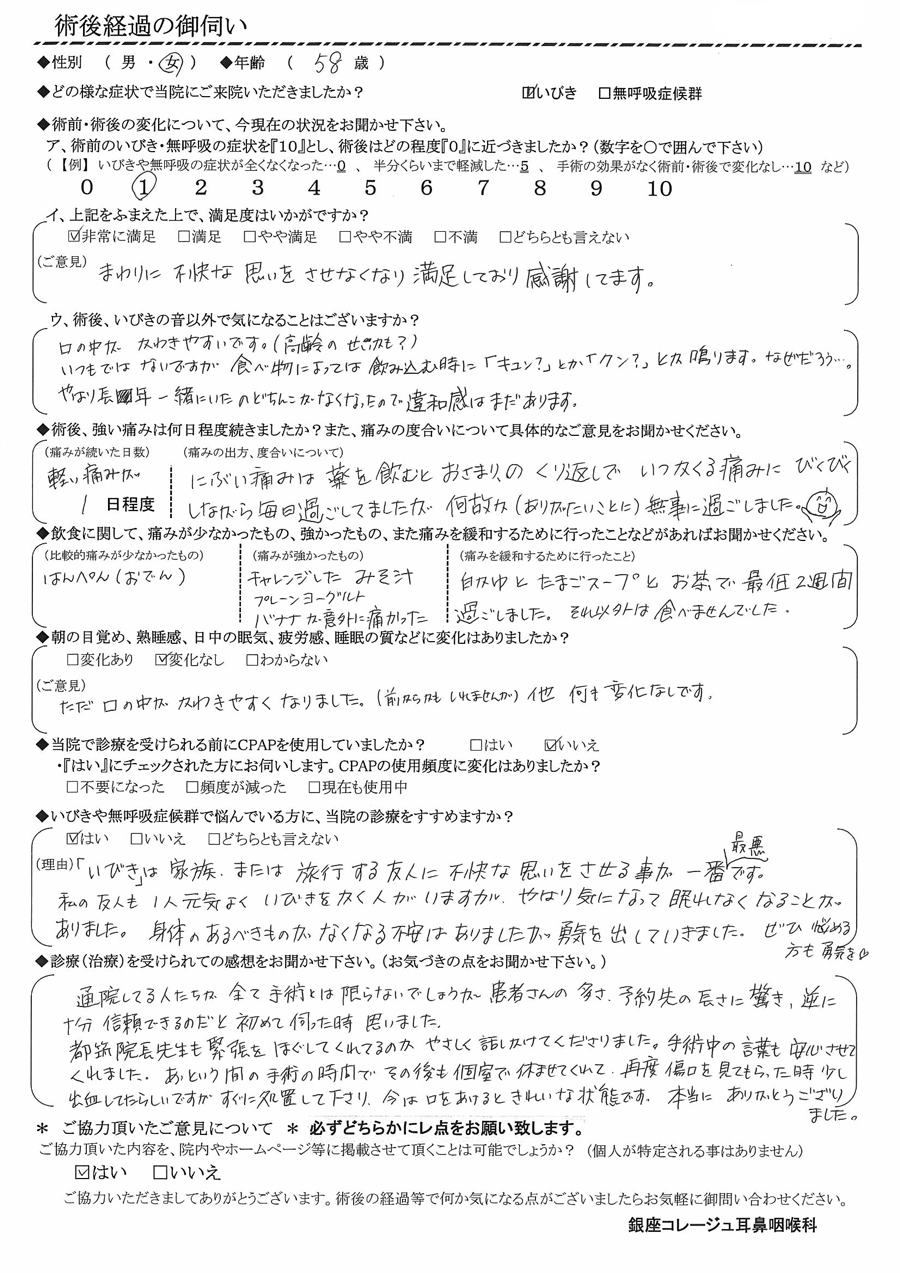 術後経過の御伺い
◆性別 ( 男 ・ 女 ) ◆年齢 ( 58 歳 )
◆どの様な症状で当院にご来院いただきましたか？ ☑いびき □無呼吸症候群
◆術前・術後の変化について、今現在の状況をお聞かせ下さい。
ア、術前のいびき・無呼吸の症状を『10』とし、術後はどの程度『0』に近づきましたか？（数字を○で囲んで下さい）
（【例】いびきや無呼吸の症状が全くなくなった…0 、 半分くらいまで軽減した…5 、 手術の効果がなく術前・術後で変化なし…10 など）
0 1 2 3 4 5 6 7 8 9 10
イ、上記をふまえた上で、満足度はいかがですか？
☑非常に満足 □満足 □やや満足 □やや不満 □不満 □どちらとも言えない
(ご意見) まわりに 不快な 思いを させなくなり 満足しており 感謝してます。
ウ、術後、いびきの音以外で気になることはございますか？
口の中が かわきやすいです。(高齢の せいかも?)
いつもでは ないですが 食べ物によっては 飲み込む時に「キュン?」とか「クン?」とか 鳴ります。なぜだろう…。
やはり長年 一緒にいた のどちんこが なくなったので 違和感は まだ あります。
◆術後、強い痛みは何日程度続きましたか？また、痛みの度合いについて具体的なご意見をお聞かせください。
(痛みが続いた日数) (痛みの出方、度合いについて)
軽い痛みが にぶい痛みは 薬を飲むと おさまり、の くり返しで いつかくる痛みに びくびく
1 日程度 しながら 毎日過ごしてましたが 何故か (ありがたいことに) 無事に過ごしました。
◆飲食に関して、痛みが少なかったもの、強かったもの、また痛みを緩和するために行ったことなどがあればお聞かせください。
(比較的痛みが少なかったもの) (痛みが強かったもの) (痛みを緩和するために行ったこと)
はんぺん(おでん) チャレンジした みそ汁 白がゆ と たまごスープ と お茶で 最低 2週間
プレーンヨーグルト
バナナが意外に痛かった 過ごしました。それ以外は 食べませんでした.
◆朝の目覚め、熟睡感、日中の眠気、疲労感、睡眠の質などに変化はありましたか？
□変化あり ☑変化なし □わからない
(ご意見)
ただ 口の中が かわきやすく なりました。(前からかも しれませんが) 他 何も 変化なしです。
◆当院で診療を受けられる前にCPAPを使用していましたか？ □はい ☑いいえ
・『はい』にチェックされた方にお伺いします。CPAPの使用頻度に変化はありましたか？
□不要になった □頻度が減った □現在も使用中
◆いびきや無呼吸症候群で悩んでいる方に、当院の診療をすすめますか？
☑はい □いいえ □どちらとも言えない
(理由)「いびき」は 家族、または 旅行する友人に 不快な 思いを させる事が 一番 最悪 です。
私の 友人も 1人 元気よく いびきをかく人が いますが、やはり気になって 眠れなくなることが
ありました。 身体の あるべきものが なくなる不安は ありましたが 勇気を出していきました。 ぜひ 悩める
方も 勇気を♡
◆診療（治療）を受けられての感想をお聞かせ下さい。（お気づきの点をお聞かせ下さい。）
通院してる人たちが 全て 手術とは 限らないでしょうが 患者さんの 多さ、予約先の 長さに 驚き、逆に
十分 信頼できるのだと 初めて 伺った時 思いました.
都筑院長先生も 緊張を ほぐしてくれてるのか やさしく 話しかけてくださりました。手術中の 言葉も 安心させて
くれました。あっという間の 手術の時間で その後も 個室で 休ませてくれて、再度 傷口を 見てもらった時 少し
出血してたらしいですが すぐに 処置して下さり、今は 口をあけると きれいな状態です. 本当に ありがとうござい
ました。
＊ ご協力頂いたご意見について ＊ 必ずどちらかにレ点をお願い致します。
ご協力頂いた内容を、院内やホームページ等に掲載させて頂くことは可能でしょうか？（個人が特定される事はありません）
☑はい □いいえ
ご協力いただきましてありがとうございます。術後の経過等で何か気になる点がございましたらお気軽に御問い合わせください。
銀座コレージュ耳鼻咽喉科